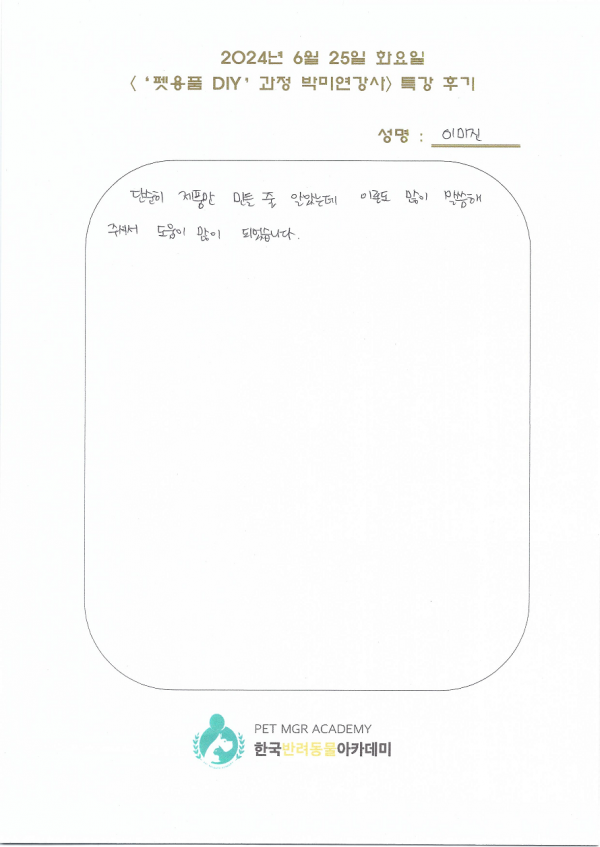 2024년 6월 25일 화요일
< '펫용품 DIY' 과정 박미연강사> 특강 후기
성명 : 이미진
단순히 제품만 만들 줄 알았는데 이론도 많이 말씀해
주셔서 도움이 많이 되었습니다.
PET MGR ACADEMY
한국반려동물아카데미